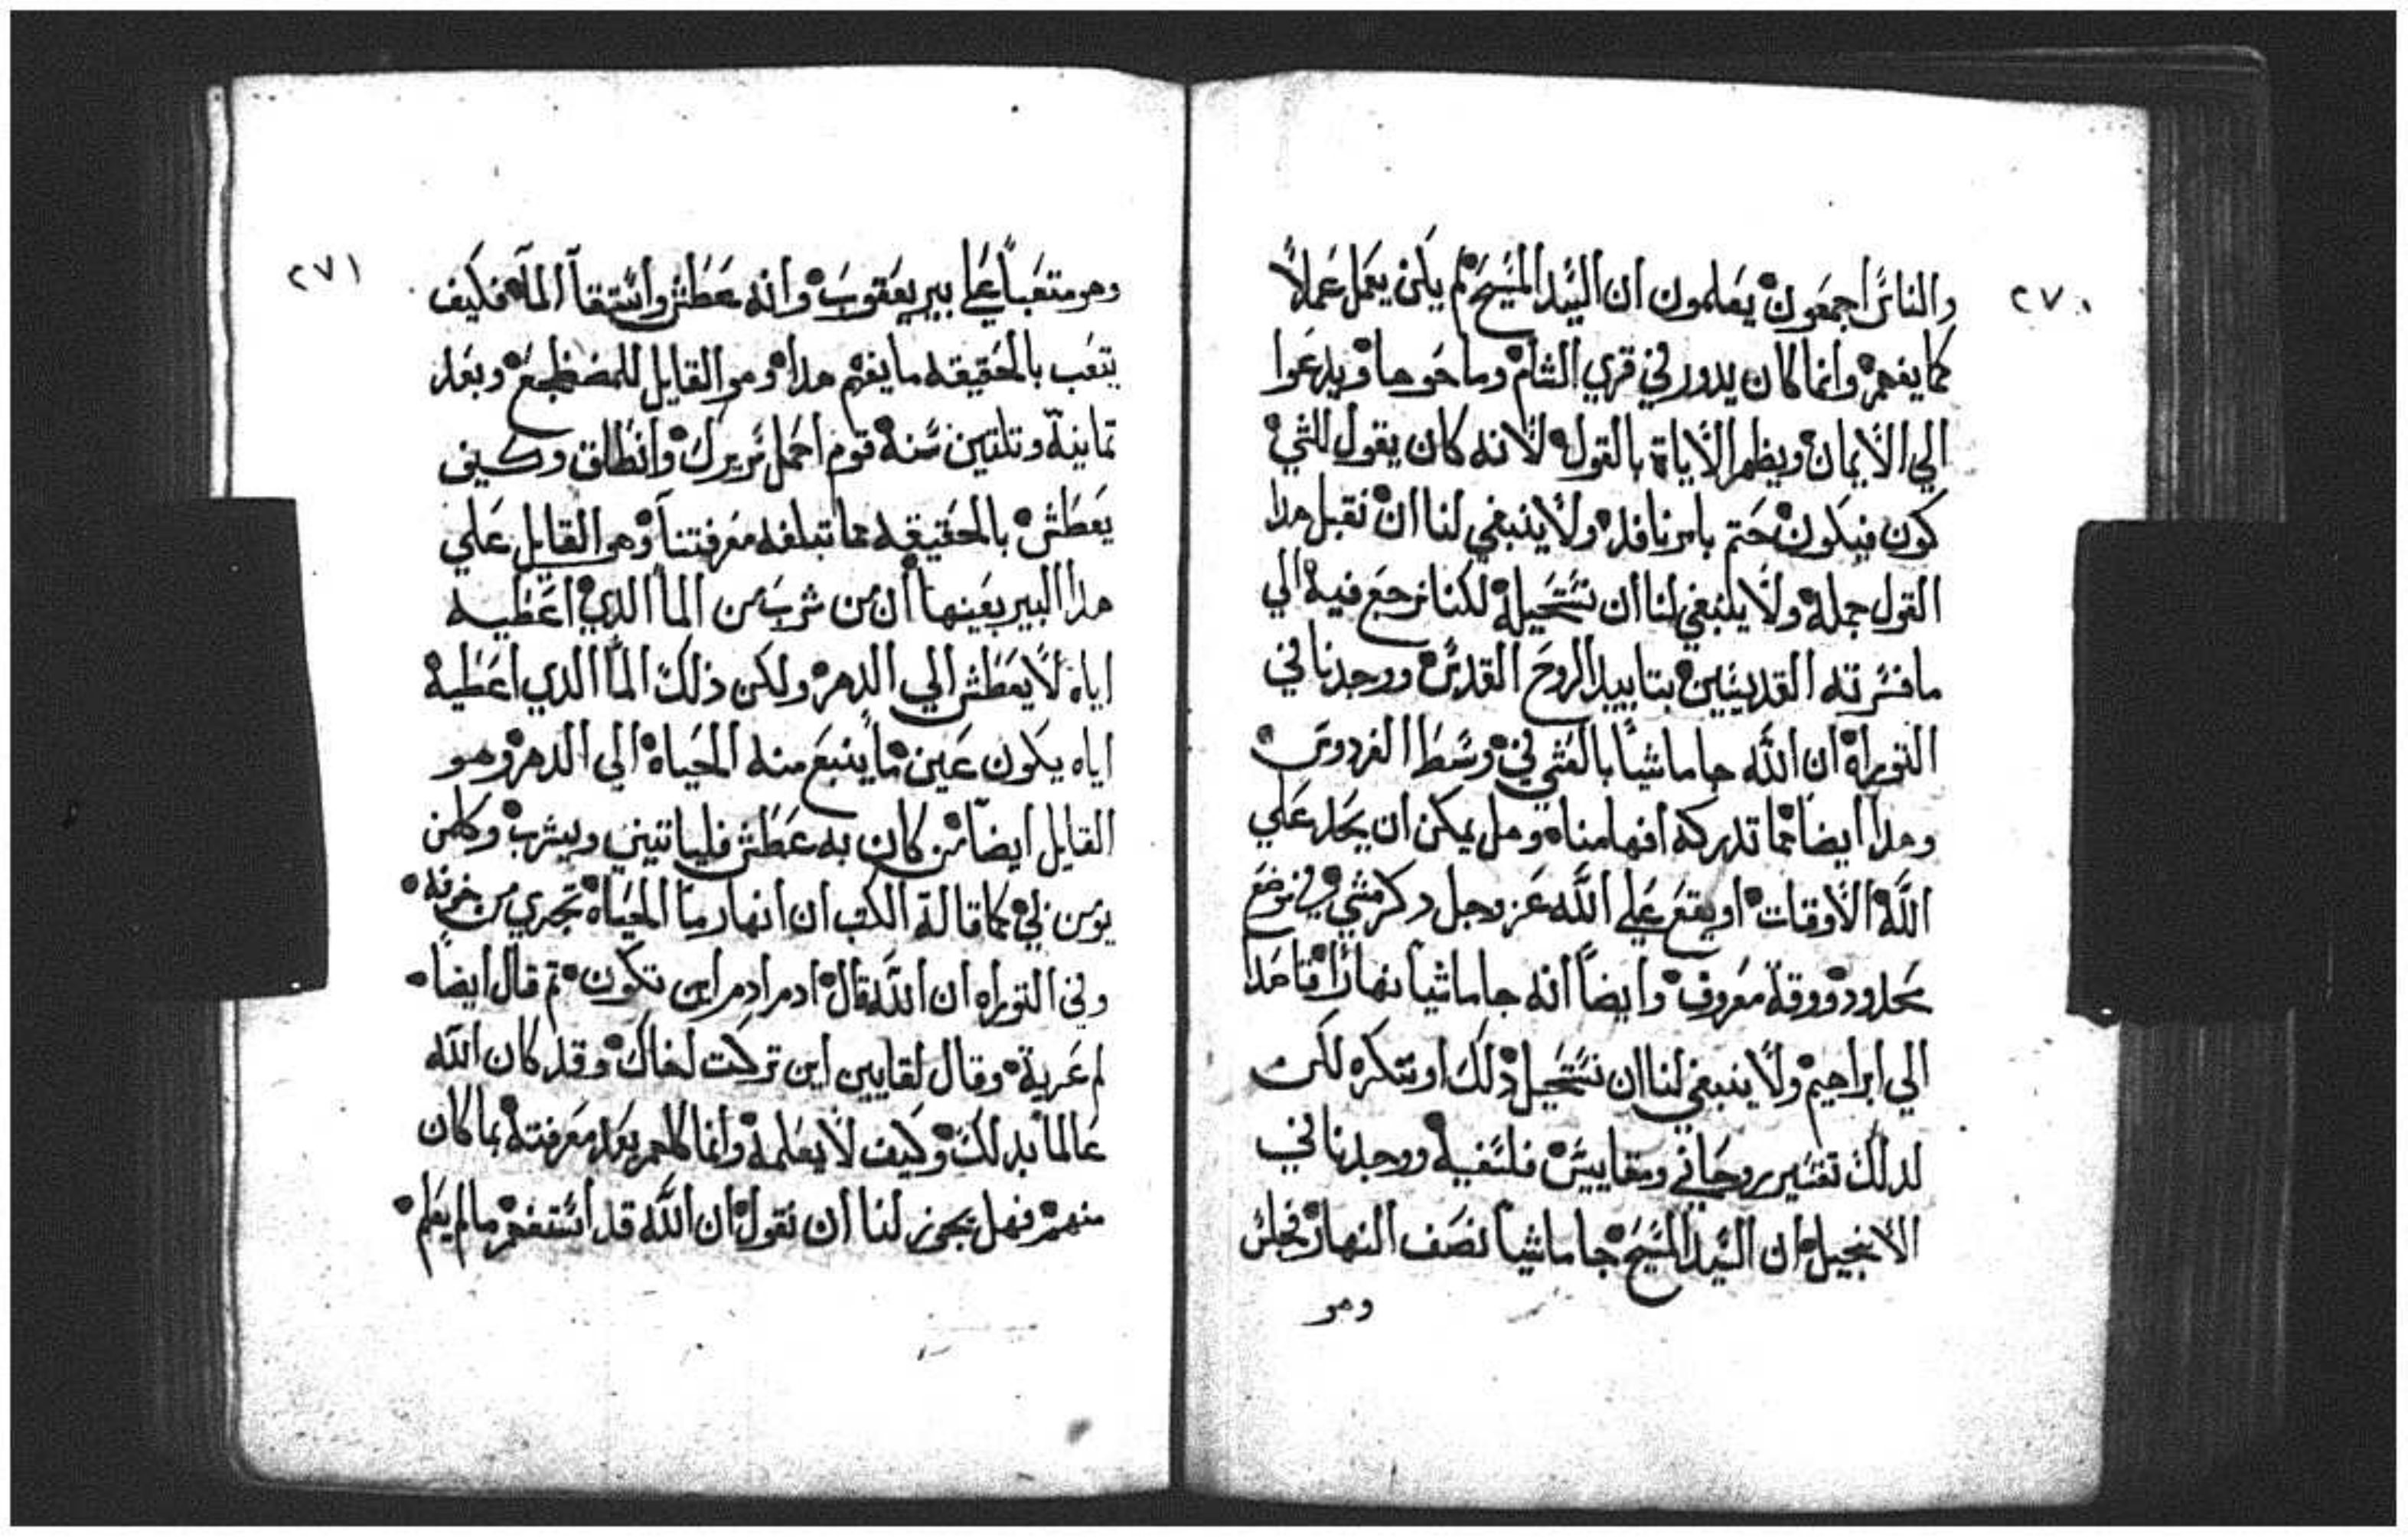 ٢٧٠
والناس اجمعون يعلمون ان السيد المسيح لم يكن يعمل عملاً
كما يفهم وانما كان يدور في قري الشام وما حوها ويدعوا
الي الايمان ويظهر الاياة بالقول لانه كان يقول للشي
كون فيكون حتم بامر نافد ولا ينبغي لنا ان نقبل هدا
القول جملة ولا ينبغي لنا ان نستحيله لكنا نرجع فيه الي
ما فسرته القديسين بتاييد الروح القدس ووجدنا في
التوراة ان الله جا ماشياً بالعشي في وسط الفردوس
وهدا ايضا مما تدركه افهامنا وهل يمكن ان يحد علي
الله الاوقات او يقع علي الله عز وجل دكر مشي في موضع
محدود ووقة معروف وايضاً انه جا ماشياً نهاراً قاصداً
الي ابراهيم ولا ينبغي لنا ان نستحيل ذلك او ننكره لكن
لدلك تفسير روحاني ومقاييس فلسفيه ووجدنا في
الانجيل ان السيد المسيح جا ماشياً نصف النهار فجلس
وهو
٢٧١
وهو متعباً علي بير يعقوب وانه عطش واستقا الما فكيف
يتعب بالحقيقه ما يفهم هدا وهو القايل للمضطجع وبعد
تمانية وتلتين سنة قوم احمل سريرك وانطلق وكيف
يعطش بالحقيقه مما تبلغه معرفتنا وهو القايل علي
هدا البير بعينها ان من شرب من الما الدي اعطيه
اياه لا يعطش الي الدهر ولكن ذلك الما الدي اعطية
اياه يكون عين ما ينبع منه الحياة الي الدهر وهو
القايل ايضا من كان به عطش فلياتيني ويشرب وكلمن
يومن بي كما قالة الكتب ان انهار ما الحياة تجري من جوفه
وفي التوراه ان الله قال ادم ادم اين تكون تم قال ايضاً
لم عرية وقال لقايين اين تركت اخاك وقد كان الله
عالماً بدلك وكيف لا يعلمة وانما كلمهم بعد معرفته بما كان
منهم فهل يجوز لنا ان نقول ان الله قد استفهم ما لم يعلم